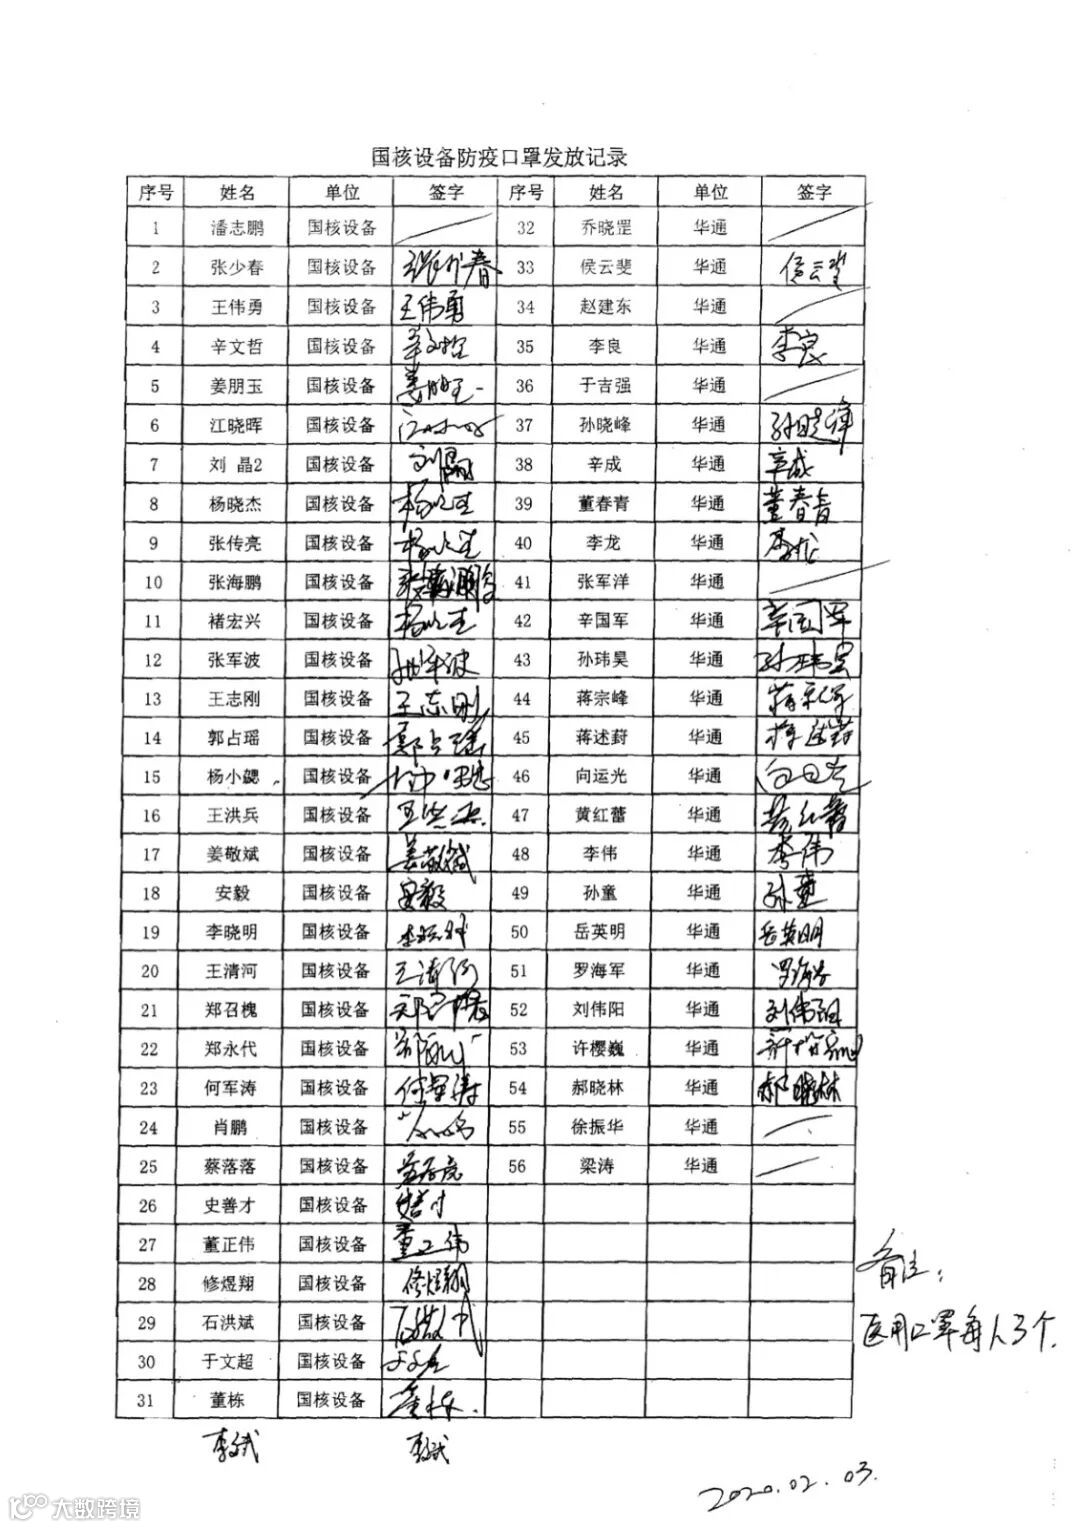 国核设备防疫口罩发放记录
序号 姓名 单位 签字 序号 姓名 单位 签字
1 潘志鹏 国核设备 32 乔晓罡 华通
2 张少春 国核设备 张少春 33 侯云斐 华通 侯云斐
3 王伟勇 国核设备 王伟勇 34 赵建东 华通
4 辛文哲 国核设备 辛文哲 35 李良 华通 李良
5 姜朋玉 国核设备 姜朋玉 36 于吉强 华通
6 江晓晖 国核设备 37 孙晓峰 华通 孙晓峰
7 刘 晶2 国核设备 刘晶 38 辛成 华通 辛成
8 杨晓杰 国核设备 39 董春青 华通 董春青
9 张传亮 国核设备 40 李龙 华通 李龙
10 张海鹏 国核设备 张海鹏 41 张军洋 华通
11 褚宏兴 国核设备 42 辛国军 华通 辛国军
12 张军波 国核设备 张军波 43 孙玮昊 华通 孙玮昊
13 王志刚 国核设备 王志刚 44 蒋宗峰 华通
14 郭占瑶 国核设备 郭占瑶 45 蒋述葑 华通 蒋述葑
15 杨小勰 国核设备 46 向运光 华通
16 王洪兵 国核设备 王洪兵 47 黄红蕾 华通 黄红蕾
17 姜敬斌 国核设备 姜敬斌 48 李伟 华通 李伟
18 安毅 国核设备 安毅 49 孙童 华通 孙童
19 李晓明 国核设备 50 岳英明 华通 岳英明
20 王清河 国核设备 王清河 51 罗海军 华通 罗海军
21 郑召槐 国核设备 郑召槐 52 刘伟阳 华通 刘伟阳
22 郑永代 国核设备 郑永代 53 许樱巍 华通
23 何军涛 国核设备 何军涛 54 郝晓林 华通 郝晓林
24 肖鹏 国核设备 55 徐振华 华通
25 蔡落落 国核设备 56 梁涛 华通
26 史善才 国核设备
27 董正伟 国核设备 董正伟
28 修煜翔 国核设备 修煜翔
29 石洪斌 国核设备 石洪斌
30 于文超 国核设备
31 董栋 国核设备 董栋
备注：
医用口罩每人3个.
2020.02.03.
大数跨境